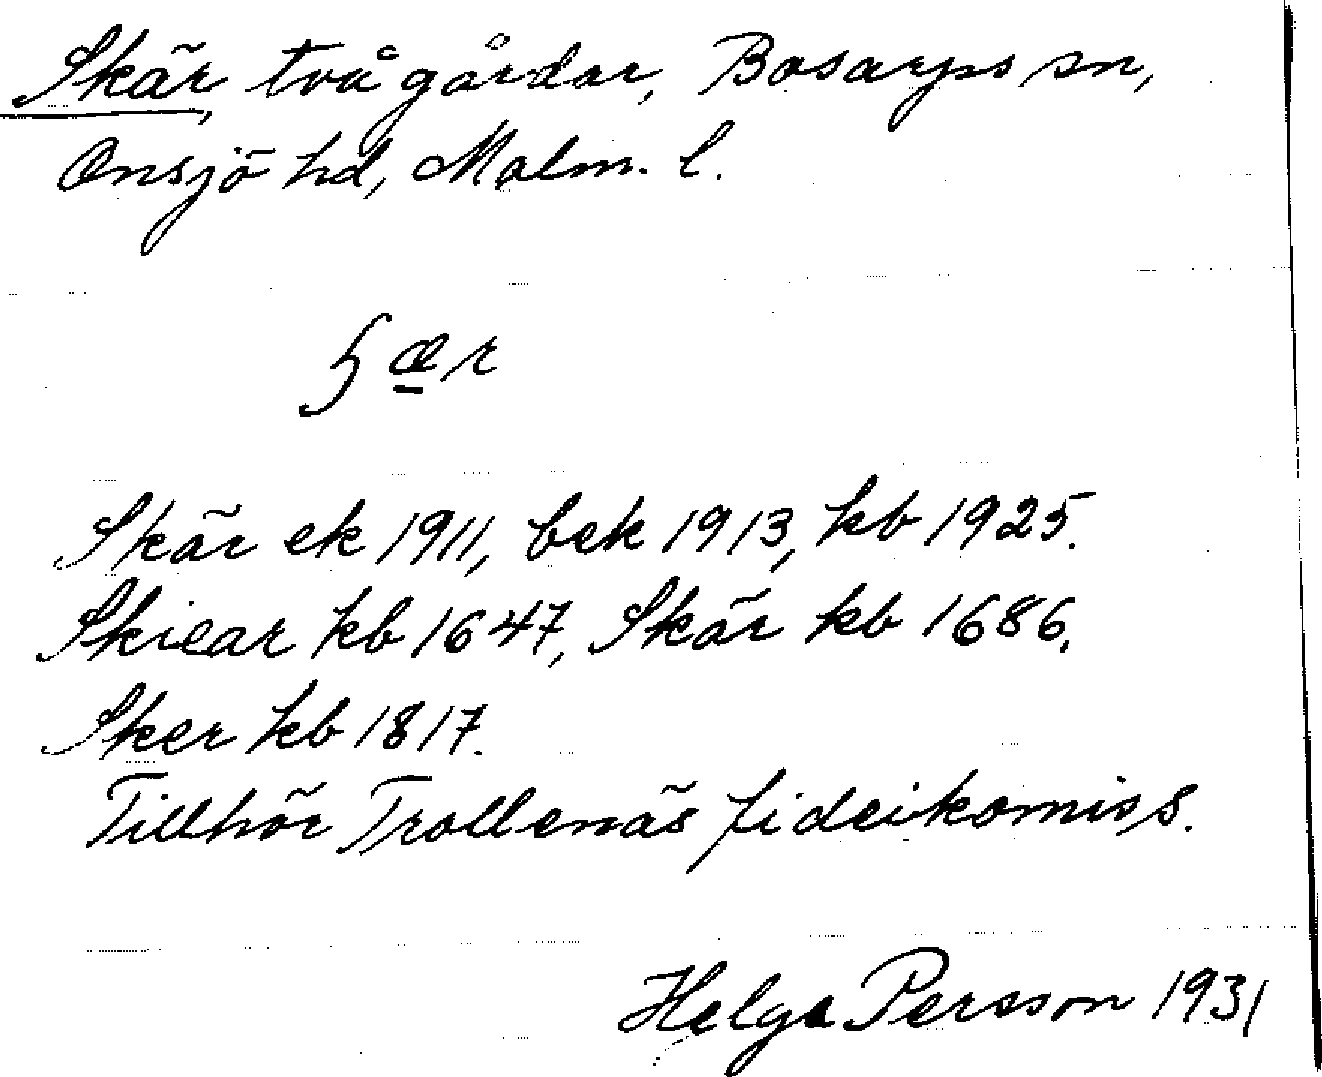 Skär, två gårdar, Bosarps sn,
Onsjö hd, Malm. l.
ʃæ̱r
Skär ek 1911, bek 1913, kb 1925.
Skiear kb 1647, Skär kb 1686,
Sker kb 1817.
Tillhör Trollenäs fideikomiss.
Helga Persson 1931